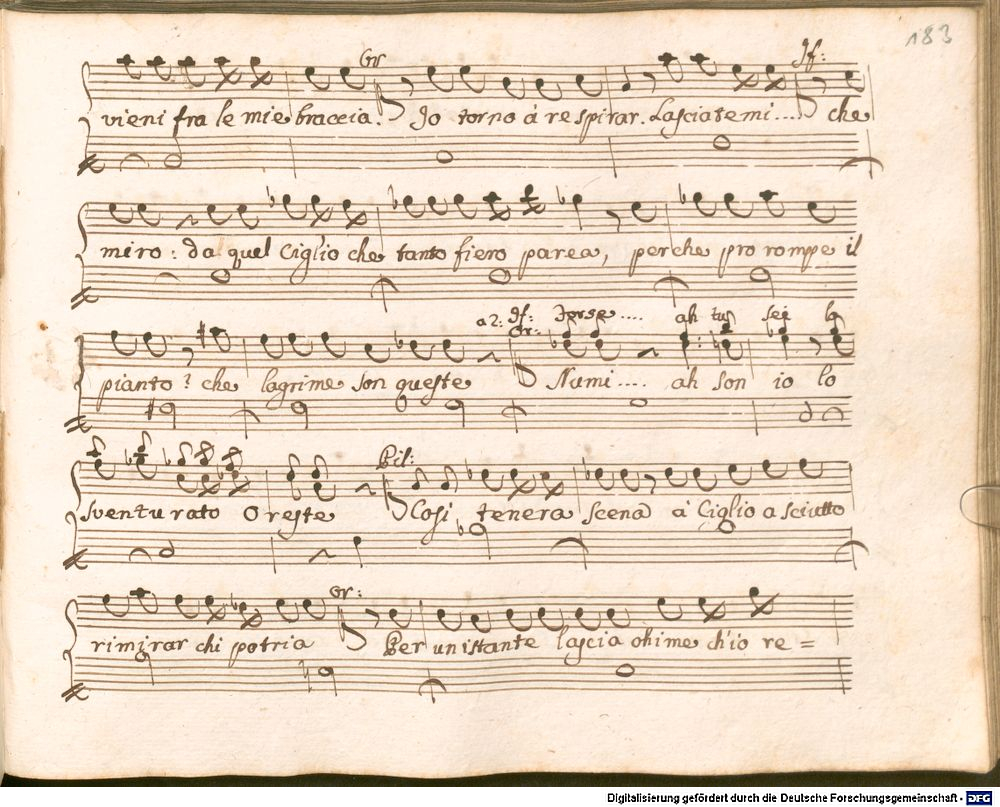 183
Or If:
vieni fra le mie braccia. Io torno á respirar. Lasciatemi... che
miro: da quel Ciglio che tanto fiero parea, perche prorompe il
a2: If: Forse.... ah tu sei lo
Or:
pianto? che lagrime son queste Numi.... ah son io lo
Pil:
sventurato Oreste Cosi tenera scena á Ciglio asciutto
Or:
rimirar chi potria Per un istante lascia ohime ch'io re=
Digitalisierung gefördert durch die Deutsche Forschungsgemeinschaft - DFG